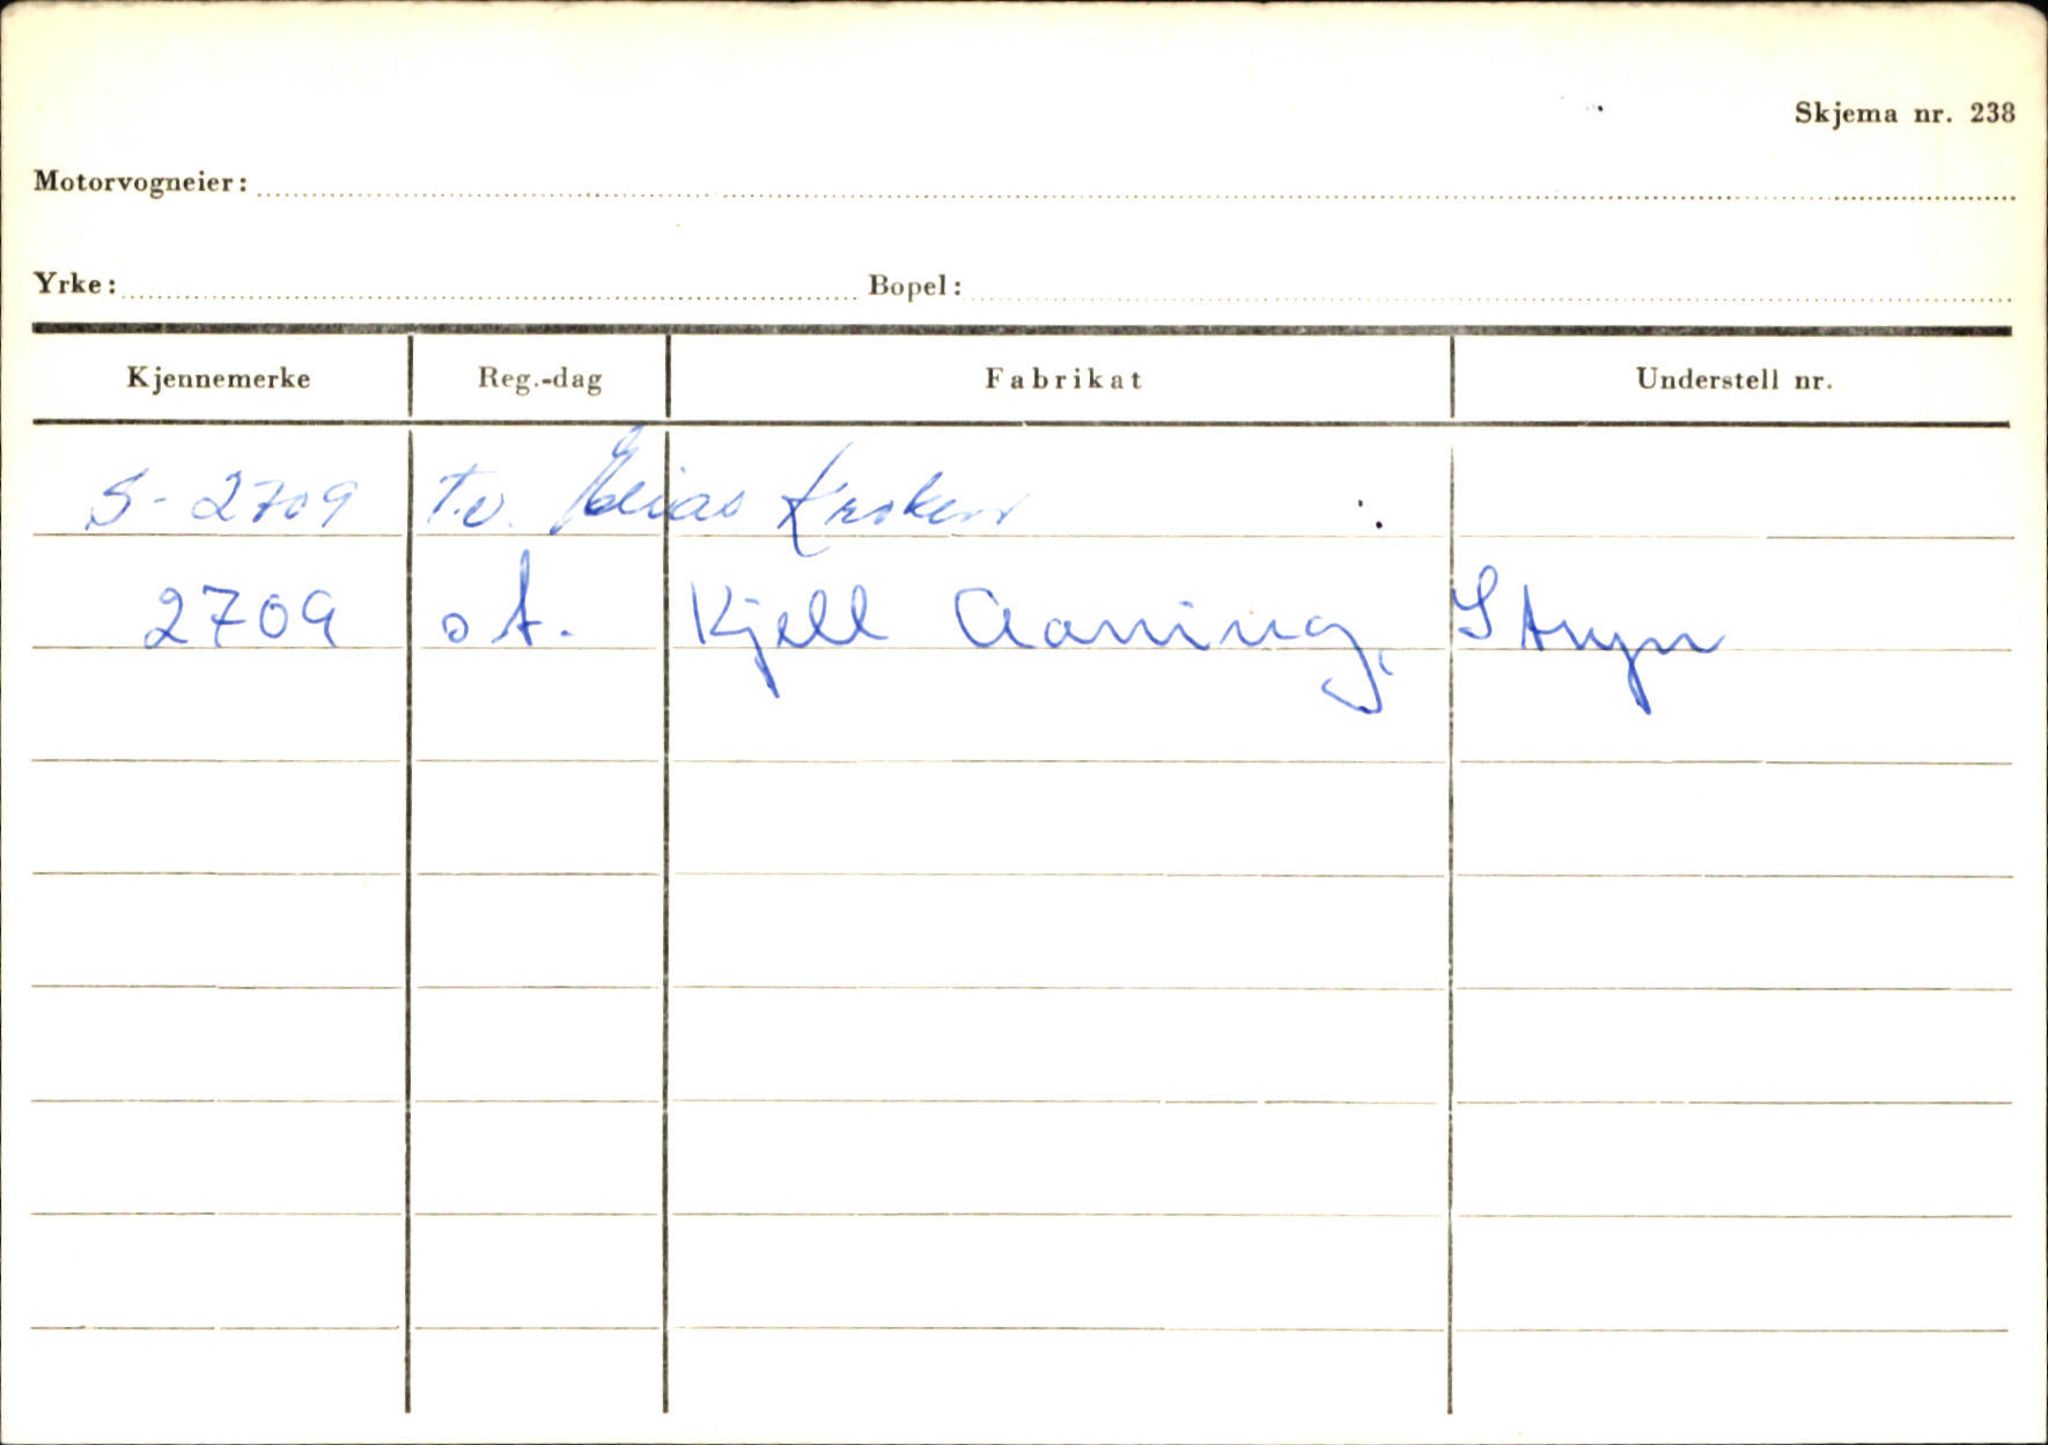 Skjema nr. 238
Motorvogneier:
Yrke: Bopel:
Kjennemerke Reg.-dag Fabrikat Understell nr.
S-2709 T.v. Elias Kroken
2709 ot. Kjell Aaning, Stryn